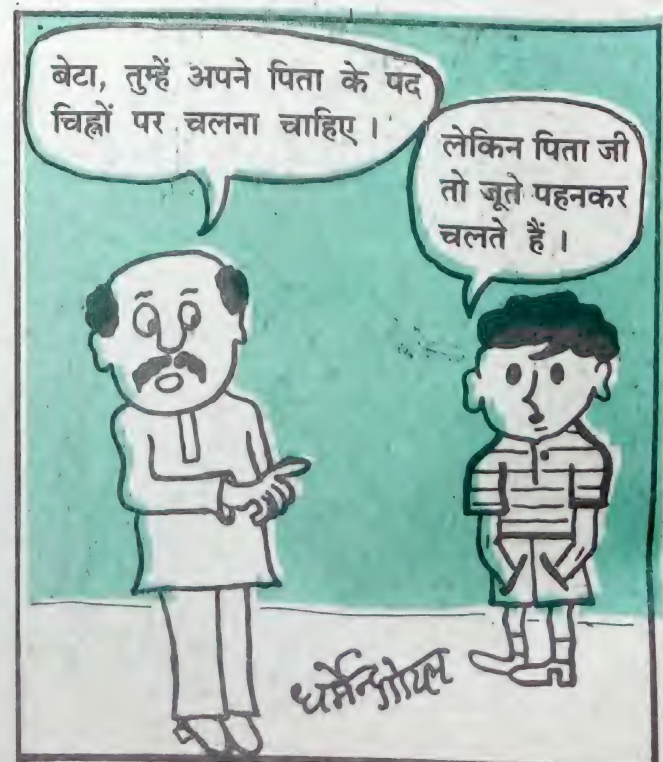 बेटा, तुम्हें अपने पिता के पद
चिह्नों पर चलना चाहिए ।
लेकिन पिता जी
तो जूते पहनकर
चलते हैं ।
धर्मेन्द्र गोयल